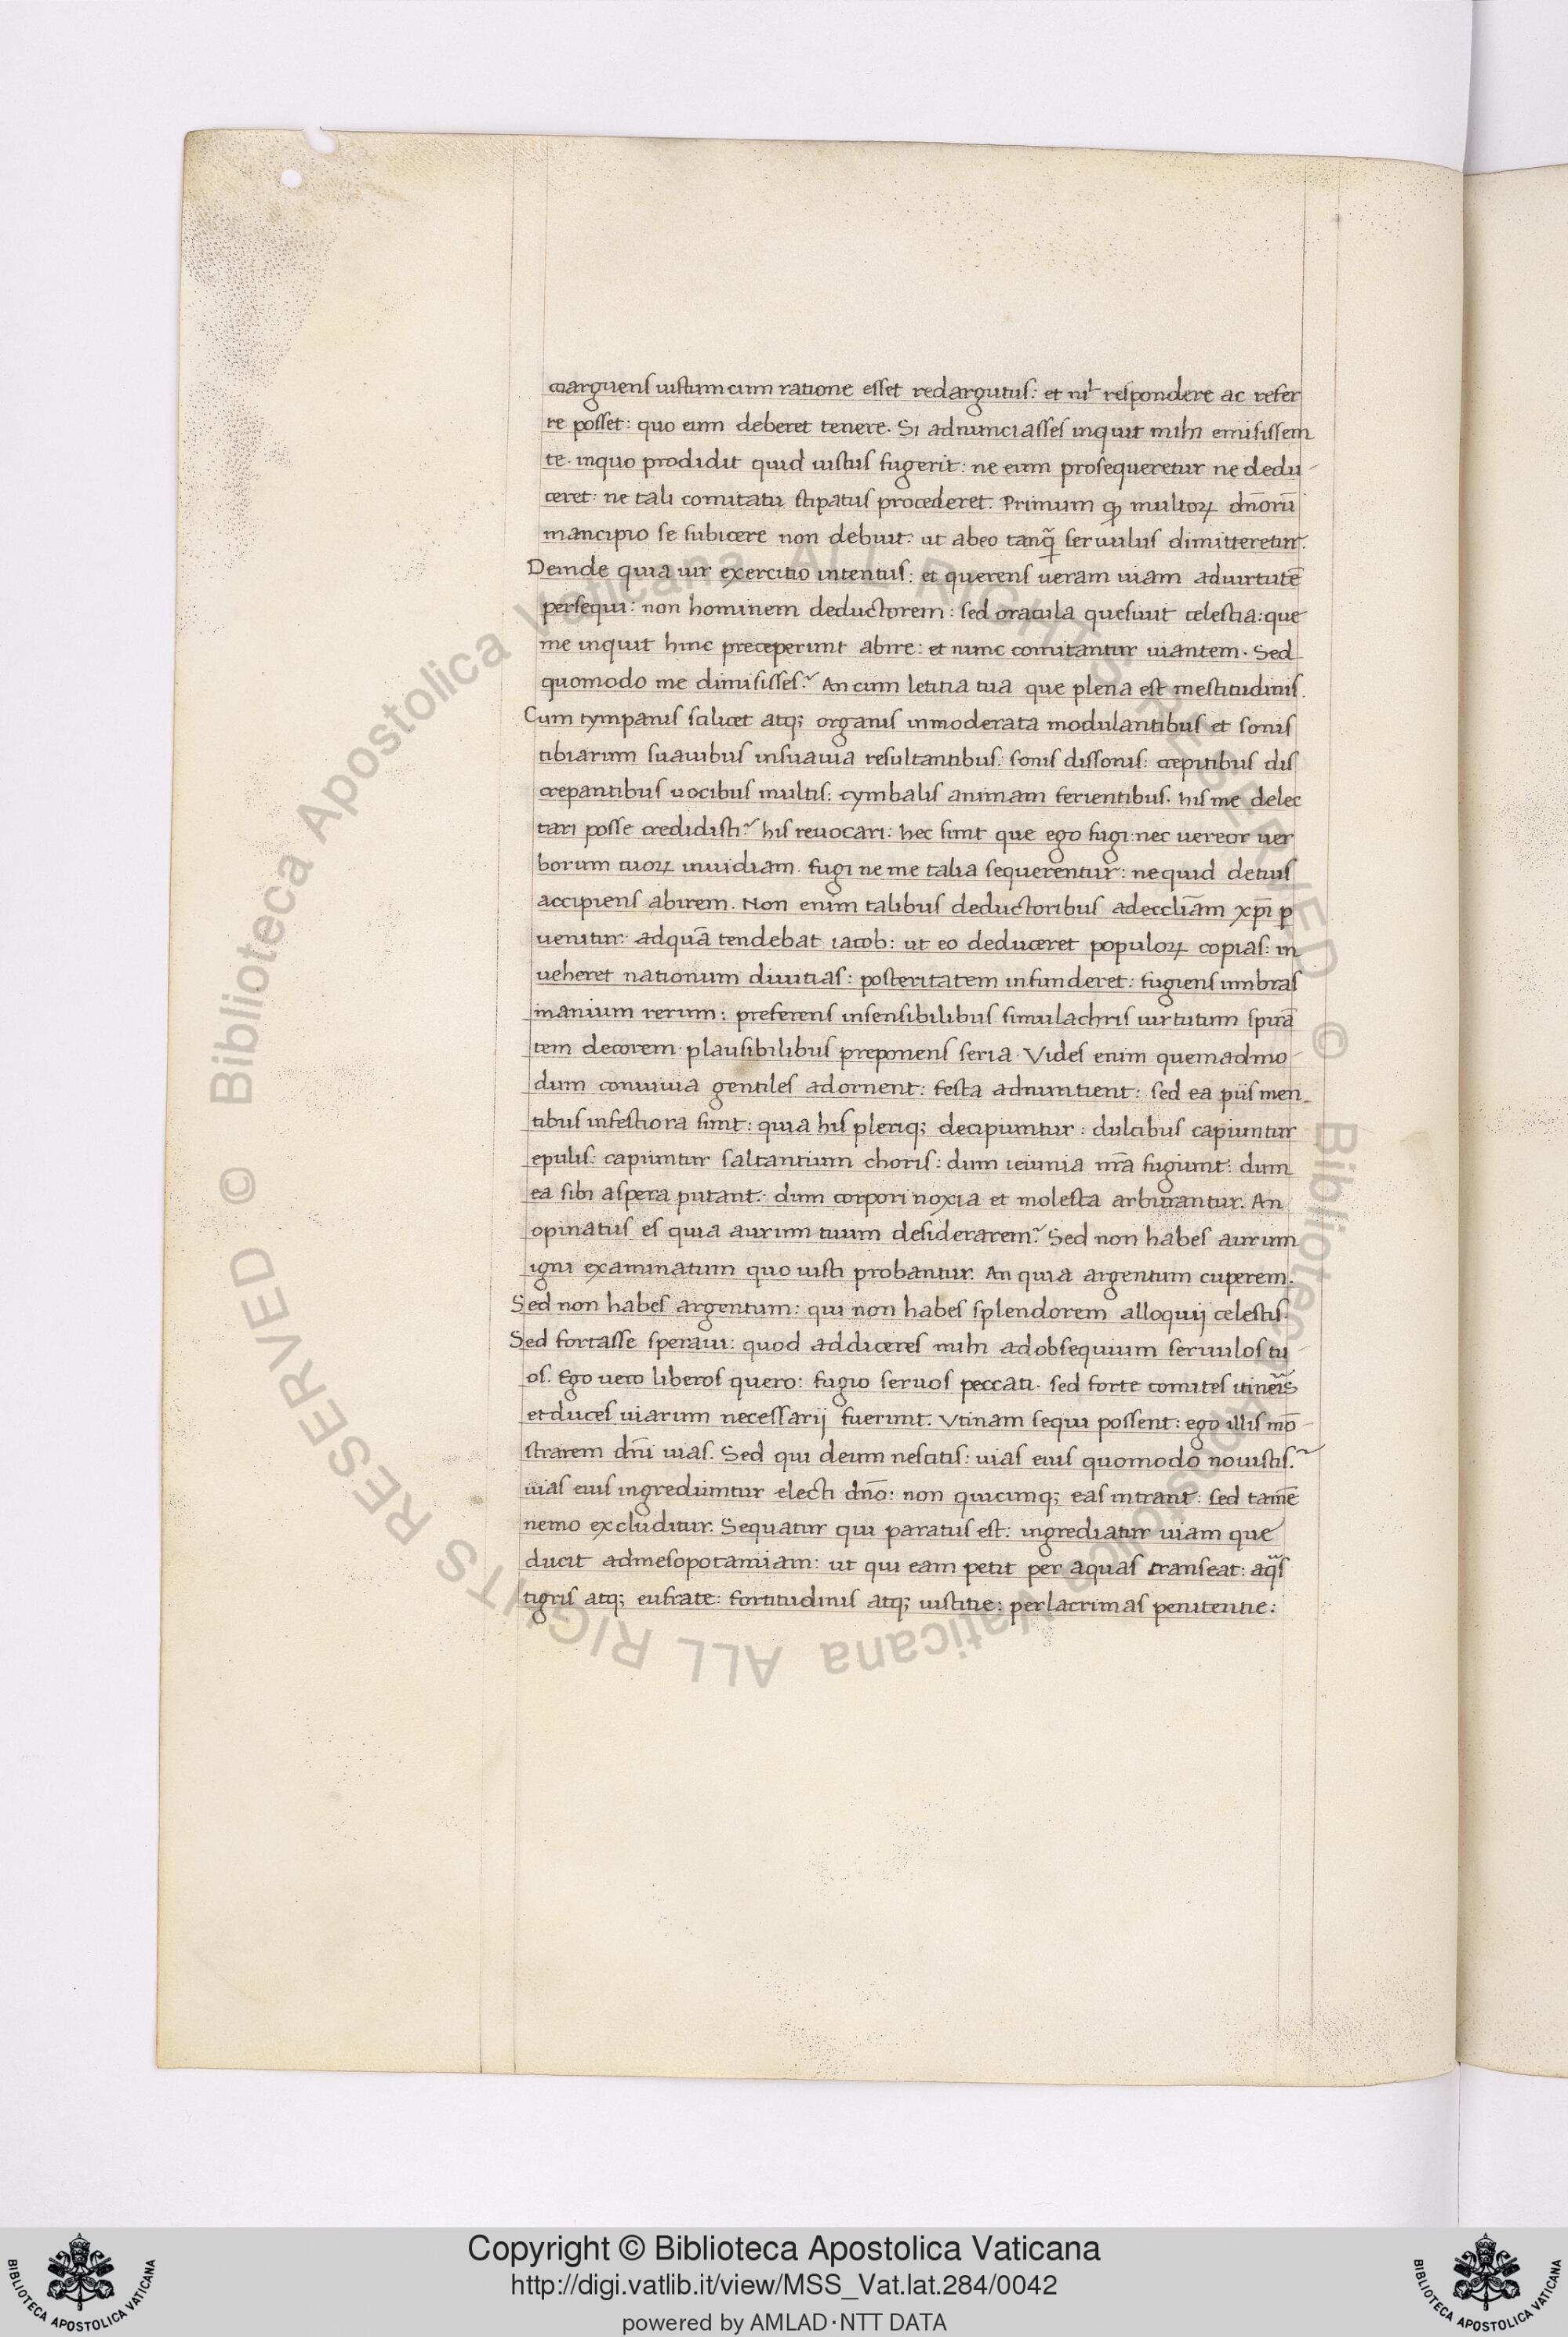 coarguens iustum cum ratione esset redargutus: et nił respondere ac refer
re posset: quo eum deberet tenere. Si adnunciasses inquit mihi emisissem
te. inquo prodidit quid iustus fugerit: ne eum prosequeretur ne dedu-
ceret: ne tali comitatu stipatus procederet. Primum ꝙ multoꝝ dn̄orū
mancipio se subicere non debuit: ut abeo tanq̄ seruulus dimitteretur.
Deinde quia uir exercitio intentus: et querens ueram uiam aduirtutē
persequi: non hominem deductorem: sed oracula quesiuit celestia: que
me inquit hinc preceperunt abire: et nunc comitantur uiantem. Sed
quomodo me dimisisses? An cum letitia tua que plena est mestitudinis.
Cum tympanis scilicet atq; organis inmoderata modulantibus et sonis
tibiarum suauibus insuauia resultantibus: sonis dissonis: crepitibus dis
crepantibus uocibus multis: cymbalis animam ferientibus. his me delec
tari posse credidisti? his reuocari: hec sunt que ego fugi: nec uereor uer
borum tuoꝝ inuidiam. fugi ne me talia sequerentur: nequid detuis
accipiens abirem. Non enim talibus deductoribus adecclīam xp̄i ꝑ
uenitur: adquā tendebat iacob: ut eo deduceret populoꝝ copias: in
ueheret nationum diuitias: posteritatem infunderet: fugiens umbras
inanium rerum: preferens insensibilibus simulachris uirtutum spirā
tem decorem: plausibilibus preponens seria. Vides enim quemadmo-
dum conuiuia gentiles adornent: festa adnuntient: sed ea piis men-
tibus infestiora sunt: quia his pleriq; decipiuntur: dulcibus capiuntur
epulis: capiuntur saltantium choris: dum ieiunia nr̄a fugiunt: dum
ea sibi aspera putant: dum corpori noxia et molesta arbitrantur. An
opinatus es quia aurum tuum desiderarem? Sed non habes aurum
igni examinatum quo iusti probantur. An quia argentum cuperem.
Sed non habes argentum: qui non habes splendorem alloquij celestis.
Sed fortasse speraui: quod addiceres mihi adobsequium seruulos tu-
os. Ego uero liberos quero: fugio seruos peccati. sed forte comites itineris
et duces uiarum necessarij fuerunt. Vtinam sequi possent: ego illis mō-
strarem dn̄i uias. Sed qui deum nescitis: uias eius quomodo nouistis?
uias eius ingrediuntur electi dn̄o: non quicunq; eas intrant: sed tamē
nemo excluditur. Sequatur qui paratus est: ingrediatur uiam que
ducit admesopotamiam: ut qui eam petit per aquas transeat: aq̄s
tigris atq; eufrate: fortitudinis atq; iustitie: perlacrimas penitentie:
Copyright © Biblioteca Apostolica Vaticana
http://digi.vatlib.it/view/MSS_Vat.lat.284/0042
powered by AMLAD·NTT DATA
BIBLIOTECA APOSTOLICA VATICANA
BIBLIOTECA APOSTOLICA VATICANA
© Biblioteca Apostolica Vaticana ALL RIGHTS RESERVED
© Biblioteca Apostolica Vaticana ALL RIGHTS RESERVED